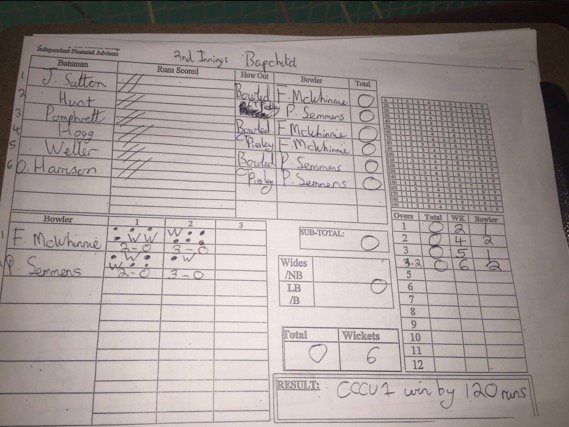 Independent Financial Advisers
2nd Innings Bapchild
Batsman Runs Scored How Out Bowler Total
1 J. Sutton Bowled F. McWhinnie 0
2 Hunt P. Semmens 0
3 Pomphrett Bowled F. McWhinnie 0
4 Hogg F. McWhinnie 0
5 Weller Bowled P. Semmens 0
6 D. Harrison P. Semmens 0
Bowler 1 2 3
1 F. McWhinnie W W W
2-0 3-0
2 P. Semmens W W
2-0 3-0
SUB-TOTAL: 0
Wides
/NB
LB
/B
0
Total Wickets
0 6
Overs Total WK Bowler
1 0 2 1
2 0 4 2
3 0 5 1
3.2 0 6 2
5
6
7
8
9
10
11
12
RESULT: CCCU 1 win by 120 runs